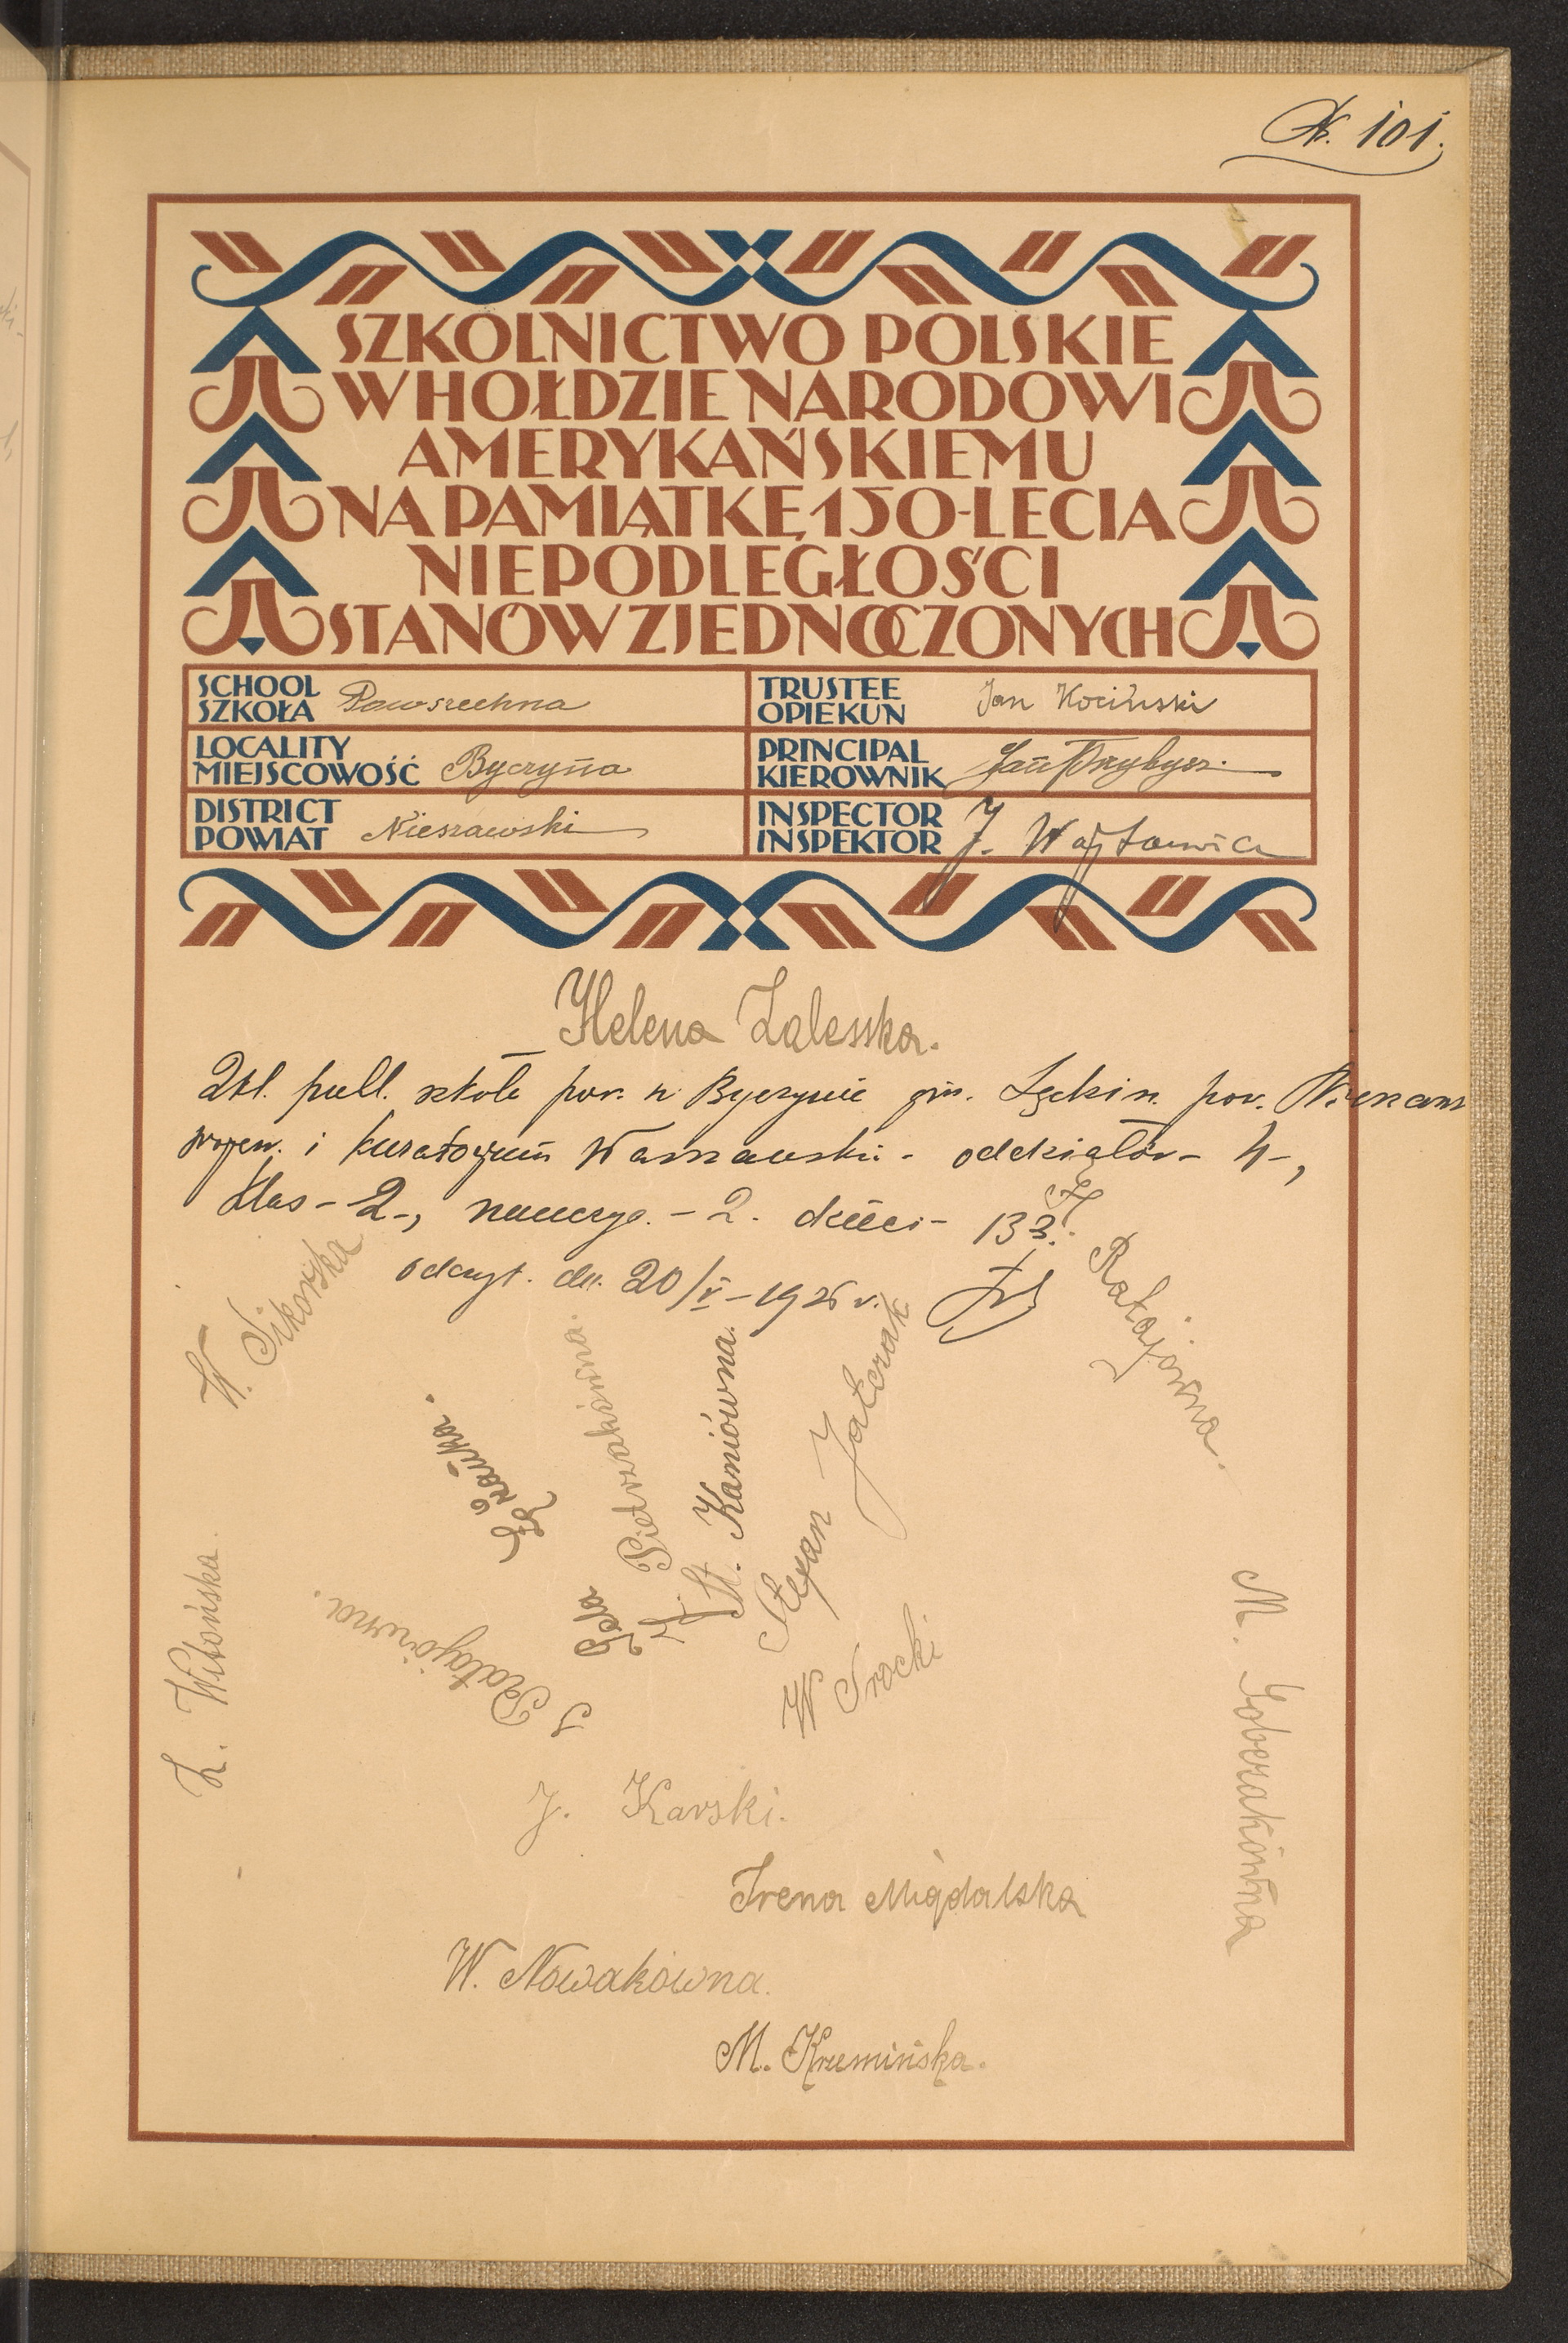 N. 101.
SZKOLNICTWO POLSKIE
W HOŁDZIE NARODOWI
AMERYKAŃSKIEMU
NA PAMIĄTKĘ 150-LECIA
NIEPODLEGŁOŚCI
STANÓW ZJEDNOCZONYCH
SCHOOL
SZKOŁA Powszechna
TRUSTEE
OPIEKUN Jan Kociński
LOCALITY
MIEJSCOWOŚĆ Byczyna
PRINCIPAL
KIEROWNIK Jan Przybysz
DISTRICT
POWIAT Nieszawski
INSPECTOR
INSPEKTOR J. Wojtowicz
Helena Zalesska.
2 kl. publ. szkoła pow. w Byczynie gm. pow. Nieszaws
wojew. i kuratorjum Warszawski - oddziałów - 4 -,
klas - 2 -, nauczyc. - 2. dzieci - 133.
dn. 20/V - 1926 r.
W. Sikorska
Ratajówna.
Pietrzakówna.
St. Kaniówna.
Stefan Jatczak
Z. Witońska.
J Ratajówna.
W Trocki
M. Goberakówna
J. Karski.
Irena Migdalska
W. Nowakówna.
M. Krzemińska.